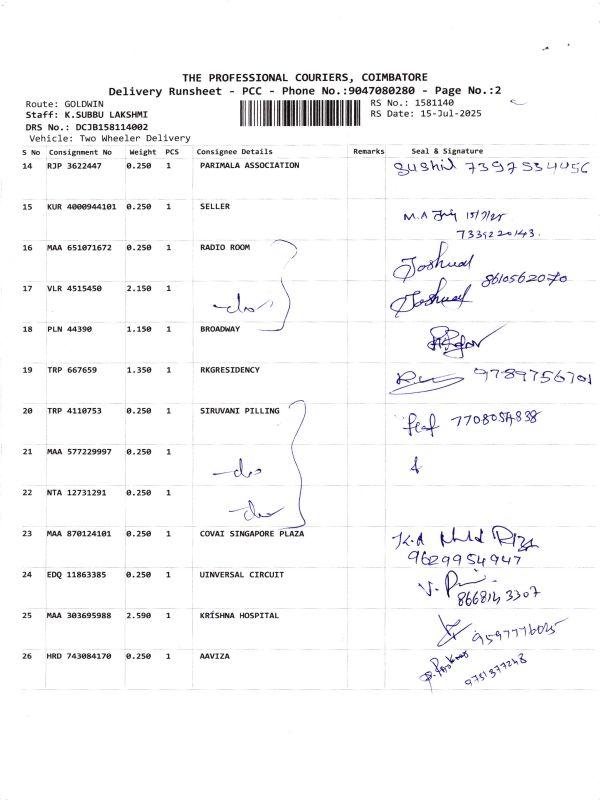 THE PROFESSIONAL COURIERS, COIMBATORE
Delivery Runsheet - PCC - Phone No.:9047080280 - Page No.:2
Route: GOLDWIN RS No.: 1581140
Staff: K.SUBBU LAKSHMI RS Date: 15-Jul-2025
DRS No.: DCJB158114002
Vehicle: Two Wheeler Delivery
S No Consignment No Weight PCS Consignee Details Remarks Seal & Signature
14 RJP 3622447 0.250 1 PARIMALA ASSOCIATION Sushil 7397534056
15 KUR 4000944101 0.250 1 SELLER
M.A 15/7/25
7339220143.
16 MAA 651071672 0.250 1 RADIO ROOM Joshua
8610562070
17 VLR 4515450 2.150 1 -do- Joshua
18 PLN 44390 1.150 1 BROADWAY
19 TRP 667659 1.350 1 RKGRESIDENCY 9789756701
20 TRP 4110753 0.250 1 SIRUVANI PILLING 7708054838
21 MAA 577229997 0.250 1 -do-
22 NTA 12731291 0.250 1 -do-
23 MAA 870124101 0.250 1 COVAI SINGAPORE PLAZA
9629954947
24 EDQ 11863385 0.250 1 UINVERSAL CIRCUIT
8668143307
25 MAA 303695988 2.590 1 KRISHNA HOSPITAL 9597776025
26 HRD 743084170 0.250 1 AAVIZA 9751377243